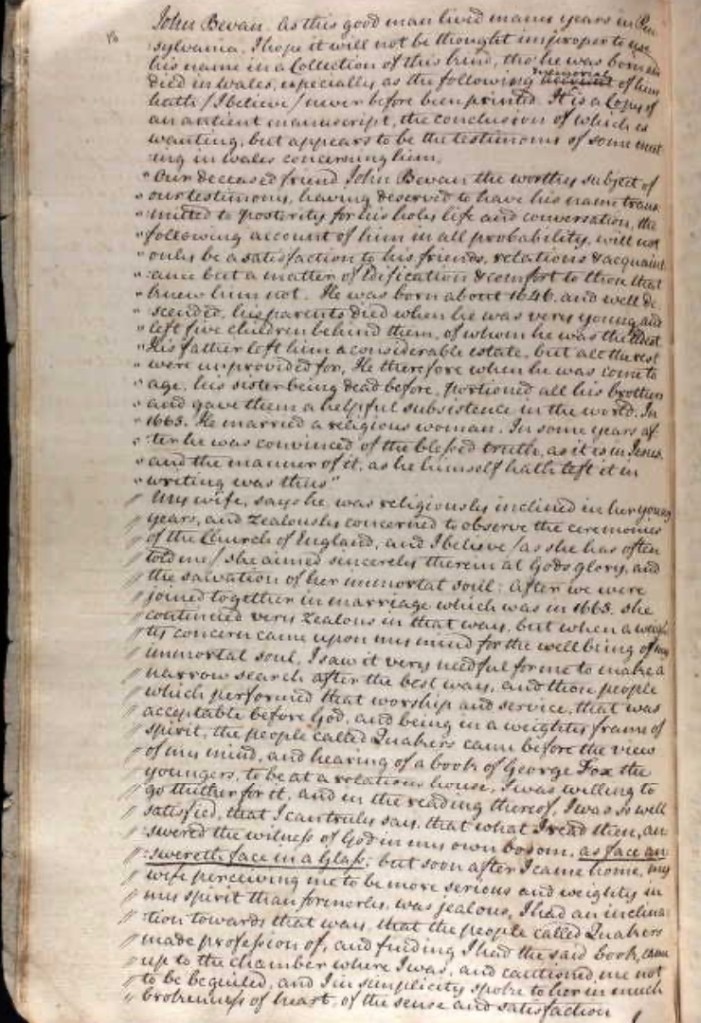 John Bevan. As this good man lived many years in Pen
sylvania, I hope it will not be thought improper to use
his name in a Collection of this kind, tho' he was born and
died in Wales, especially as the following memorial of him
hath /I believe/ never before been printed. It is a Copy of
an antient manuscript, the conclusion of which is
wanting, but appears to be the testimony of some meet
ing in Wales concerning him.
"Our deceased friend John Bevan the worthy subject of
"our testimony, having deserved to have his name trans
"mitted to posterity for his holy life and conversation, the
"following account of him in all probability, will not
"only be a satisfaction to his friends, relations & acquaint
"ance but a matter of Edification & comfort to those that
"knew him not. He was born about 1646. and well de
"scended, his parents died when he was very young, and
"left five children behind them, of whom he was the Eldest
"His father left him a considerable estate, but all the rest
"were unprovided for, He therefore when he was come to
"age, his sister being dead before, portioned all his brothers
"and gave them a helpful subsistence in the world. In
"1665. He married a religious woman. In some years af
"ter he was convinced of the blessed truth, as it is in Jesus,
"and the manner of it, as he himself hath left it in
"writing was thus"
"My wife, says he, was religiously inclined in her young
"years, and zealously concerned to observe the ceremonies
"of the Church of England, and I believe /as she has often
"told me/ she aimed sincerely therein at Gods glory, and
"the salvation of her immortal soul: after we were
"joined together in marriage which was in 1665. she
"continued very zealous in that way, but when a weigh
"ty concern came upon my mind for the well being of my
"immortal soul, I saw it very needful for me to make a
"narrow search after the best way, and those people
"which performed that worship and service, that was
"acceptable before God, and being in a weighty frame of
"spirit, the people called Quakers came before the view
"of my mind, and hearing of a book of George Fox the
"youngers, to be at a relations house, I was willing to
"go thither for it, and in the reading thereof, I was so well
"satisfied, that I can truly say, that what I read then, an
"swered the witness of God in my own bosom, as face an
"swereth face in a Glass; but soon after I came home, my
"wife perceiving me to be more serious and weighty in
"my spirit than formerly, was jealous, I had an inclina
"tion towards that way, that the people called Quakers
"made profession of, and finding I had the said book, came
"up to the chamber where I was, and cautioned me not
"to be beguiled, and I in simplicity spoke to her in much
"brokenness of heart, of the sense and satisfaction